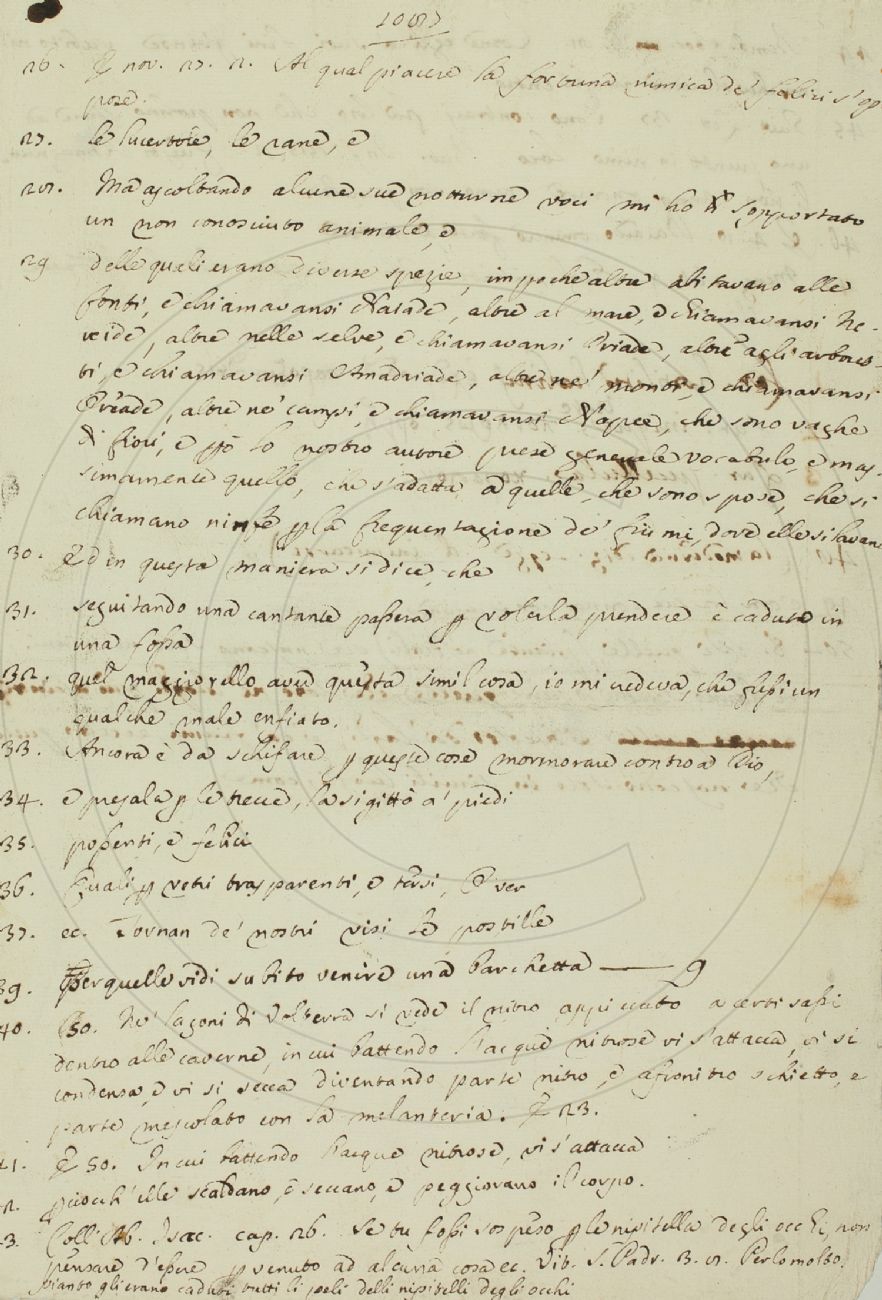 26. E nov. 27. 2. Al qual piacere la fortuna nimica de' felici s'op
pose.
27. le lucertole, le rane, e
28. Ma ascoltando alcune sue notturne voci mi ho di sopportato
un non conosciuto animale, e
29 delle quali erano diverse spezie, impoche altre abitavano alle
fonti, e chiamavansi Naiade, altre al mare, e chiamavansi Ne-
reide, altre nelle selve, e chiamavansi Driade, altre agli arbores-
ti, e chiamavansi Amadriade, altre ne' monti, e chiamavansi
Oreade, altre ne' campi, e chiamavansi Napee, che sono vaghe
di fiori, e pò lo nostro autore prese generale vocabulo, e mas-
simamente quello, che s'adatta a quelle, che sono spose, che si
chiamano ninfe p la frequentazione de' fiumi, dove elle si lavan
30. Ed in questa maniera si dice, che
31. seguitando una cantante passera p volerla prendere è caduto in
una fossa
32. quel maggiorello avea questa simil cosa, io mi credeva, che fussi un
qualche male enfiato.
33. Ancora è da schifare p queste cose mormorare contro a Dio,
34. e presala p le trecce, la si gittò a' piedi
35. possenti, e felici
36. Quali p vetri trasparenti, e tersi, O ver
37. ec. Tornan de' nostri visi le postille
39. Per quelle vidi subito venire una barchetta — 9
40. 50. Ne' lagoni di Volterra si vede il nitro appiccato a certi sassi
dentro alle caverne, in cui battendo l'acque nitrose vi s'attacca, vi si
condensa, e vi si secca diventando parte nitro, e afronitro schietto, e
parte mescolato con la melanteria. E 23.
41. E 50. In cui battendo l'acque nitrose, vi s'attacca
2. pciocch'elle scaldano, e seccano, e peggiorano il corpo.
3. Coll. Ab. Isac. cap. 26. Se tu fossi sospeso p le nipitella degli occhi, non
pensare d'essere p venuto ad alcuna cosa ec. Vit. S. Padr. Per lo molto
pianto gli erano caduti tutti li peli delli nipitelli degli occhi